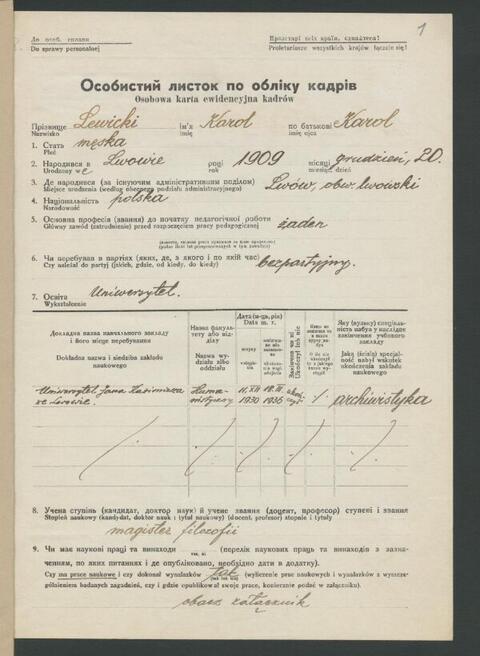 До особ. справи
Do sprawy personalnej
Пролетарі всіх країн, єднайтеся!
Proletariusze wszystkich krajów łączcie się!
1
Особистий листок по обліку кадрів
Osobowa karta ewidencyjna kadrów
Прізвище Lewicki ім'я Karol по батькові Karol
Nazwisko imię imię ojca
1. Стать męska
Płeć
2. Народився в Lwowie році 1909 місяці grudzień, 20.
Urodzony we roku miesiąc, dzień
3. Де народився (за існуючим адміністративним поділом) Lwów, obw. lwowski
Miejsce urodzenia (według obecnego podziału administracyjnego)
4. Національність polska
Narodowość
5. Основна професія (звання) до початку педагогічної роботи żaden
Główny zawód (zatrudnienie) przed rozpoczęciem pracy pedagogicznej
6. Чи перебував в партіях (яких, де, з якого і по який час) bezpartyjny.
Czy należał do partyj (jakich, gdzie, od kiedy, do kiedy)
7. Освіта Uniwersytet.
Wykształcenie
Докладна назва навчального закладу і його місце перебування
Dokładna nazwa i siedziba zakładu naukowego
Назва факультету або відділу
Nazwa wydziału albo oddziału
Дата (м-ць, рік)
Data m. r.
вступу
Закінчив чи ні
Ukończył lub nie
Яку (вузьку) спеціальність набув у наслідок закінчення учбового закладу
Jaką (ścisłą) specjalność nabył wskutek ukończenia zakładu naukowego
Uniwersytet Jana Kazimierza we Lwowie. Humanistyczny 1930 1936 archiwistyka
8. Учена ступінь (кандидат, доктор наук) й учене звання (доцент, професор) ступені і звання
Stopień naukowy (kandydat, doktor nauk i tytuł naukowy) (docent, profesor) stopnie i tytuły
magister filozofii
9. Чи має наукові праці та винаходи (перелік наукових праць та винаходів з зазначенням, по яких питаннях і де опубліковано, необхідно дати в додатку).
так, ні
Czy ma prace naukowe i czy dokonał wynalazków tak (wyliczenie prac naukowych i wynalazków z wyszczególnieniem badanych zagadnień, czy i gdzie opublikował swoje prace, koniecznie podać w załączniku).
tak lub nie
obacz załącznik